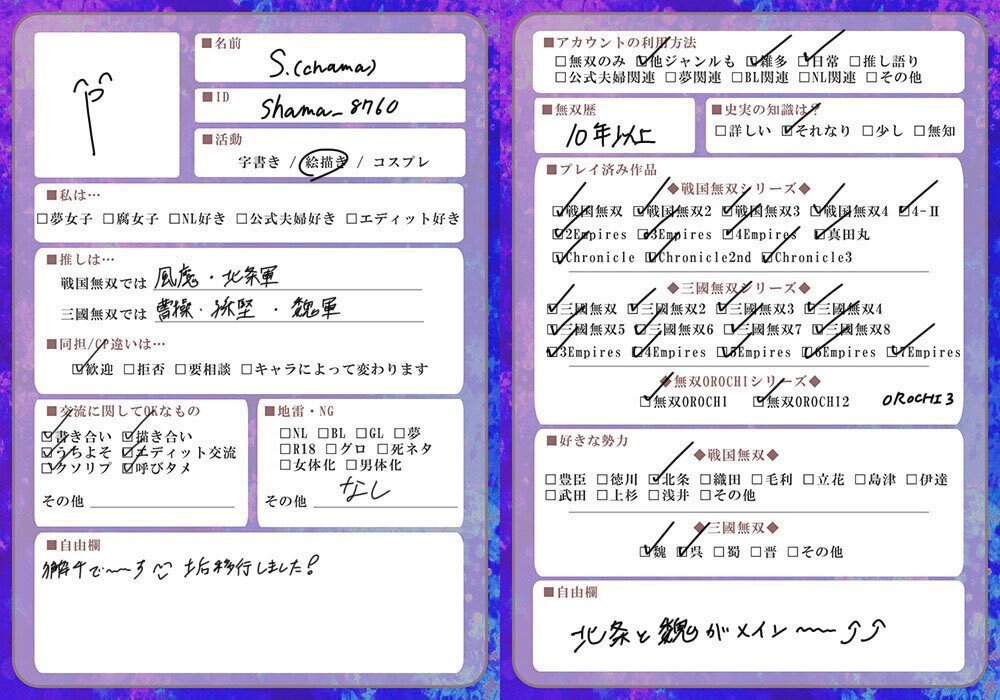 ■名前
S.(chama)
■ID
Shama_8760
■活動
字書き / 絵描き / コスプレ
■私は…
□夢女子 □腐女子 □NL好き □公式夫婦好き □エディット好き
■推しは…
戦国無双では 風魔・北条軍
三國無双では 曹操・孫堅・魏軍
■同担/CP違いは…
☑歓迎 □拒否 □要相談 □キャラによって変わります
■交流に関してOKなもの
☑書き合い ☑描き合い
☑うちよそ ☑エディット交流
☑クソリプ ☑呼びタメ
その他
■地雷・NG
□NL □BL □GL □夢
□R18 □グロ □死ネタ
□女体化 □男体化
その他 なし
■自由欄
でーーす 垢移行しました!
■アカウントの利用方法
□無双のみ ☑他ジャンルも ☑雑多 ☑日常 □推し語り
□公式夫婦関連 □夢関連 □BL関連 □NL関連 □その他
■無双歴
10年以上
■史実の知識は?
□詳しい ☑それなり □少し □無知
■プレイ済み作品
◆戦国無双シリーズ◆
☑戦国無双 ☑戦国無双2 ☑戦国無双3 ☑戦国無双4 ☑4-Ⅱ
☑2Empires ☑3Empires ☑4Empires ☑真田丸
☑Chronicle ☑Chronicle2nd ☑Chronicle3
◆三國無双シリーズ◆
☑三國無双 ☑三國無双2 ☑三國無双3 ☑三國無双4
☑三國無双5 ☑三國無双6 ☑三國無双7 ☑三國無双8
☑3Empires ☑4Empires ☑5Empires ☑6Empires ☑7Empires
◆無双OROCHIシリーズ◆
☑無双OROCHI ☑無双OROCHI2 OROCHI3
■好きな勢力
◆戦国無双◆
□豊臣 □徳川 ☑北条 □織田 □毛利 □立花 □島津 □伊達
□武田 □上杉 □浅井 □その他
◆三國無双◆
☑魏 ☑呉 □蜀 □晋 □その他
■自由欄
北条と魏がメイン〜〜